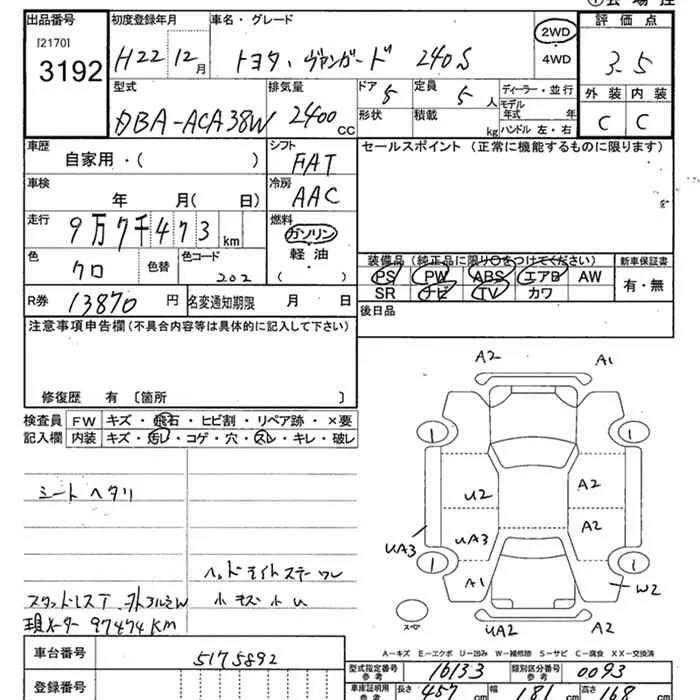 出品番号 初度登録年月 車名・グレード 2WD 評価点
[2170] 3192 H22 12月 トヨタ・ヴァンガード 240S 4WD 3.5
型式 排気量 ドア 5 定員 5人 ディーラー・並行 外装 内装
DBA-ACA38W 2400 CC 形状 積載 kg モデル年式 年 ハンドル 左・右 C C
車歴 自家用・( ) シフト FAT セールスポイント (正常に機能するものに限ります)
車検 年 月( 日) 冷房 AAC
走行 9万7千473km 燃料 ガソリン 軽油・ ( )
色 クロ 色替 色コード 202
装備品 (純正品に限り○をつけてください) 新車保証書
PS PW ABS エアB AW 有・無
SR ナビ TV カワ
R券 13870円 名変通知期限 月 日 後日品
注意事項申告欄 (不具合内容等は具体的に記入して下さい)
修復歴 有 〔箇所 〕
検査員 FW キズ・飛石・ヒビ割・リペア跡・×要
記入欄 内装 キズ・汚レ・コゲ・穴・スレ・キレ・破レ
シートヘタリ
現メーター 97474KM
A2 A1
1 1
U2 A2
UA3 UA3 A2
1 A1 1 W2
スペア UA2 A2
A-キズ E-エクボ U-凹み W-補修跡 S-サビ C-腐食 XX-交換済
車台番号 5175892
登録番号
型式指定番号 参考 16133 類別区分番号 参考 0093
車庫証明用 参考 長さ 457cm 幅 181cm 高さ 168cm